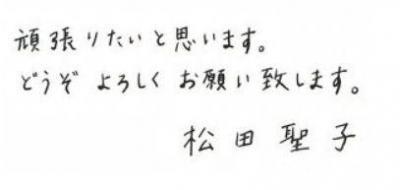 頑張りたいと思います。
どうぞ よろしく お願い致します。
松田聖子